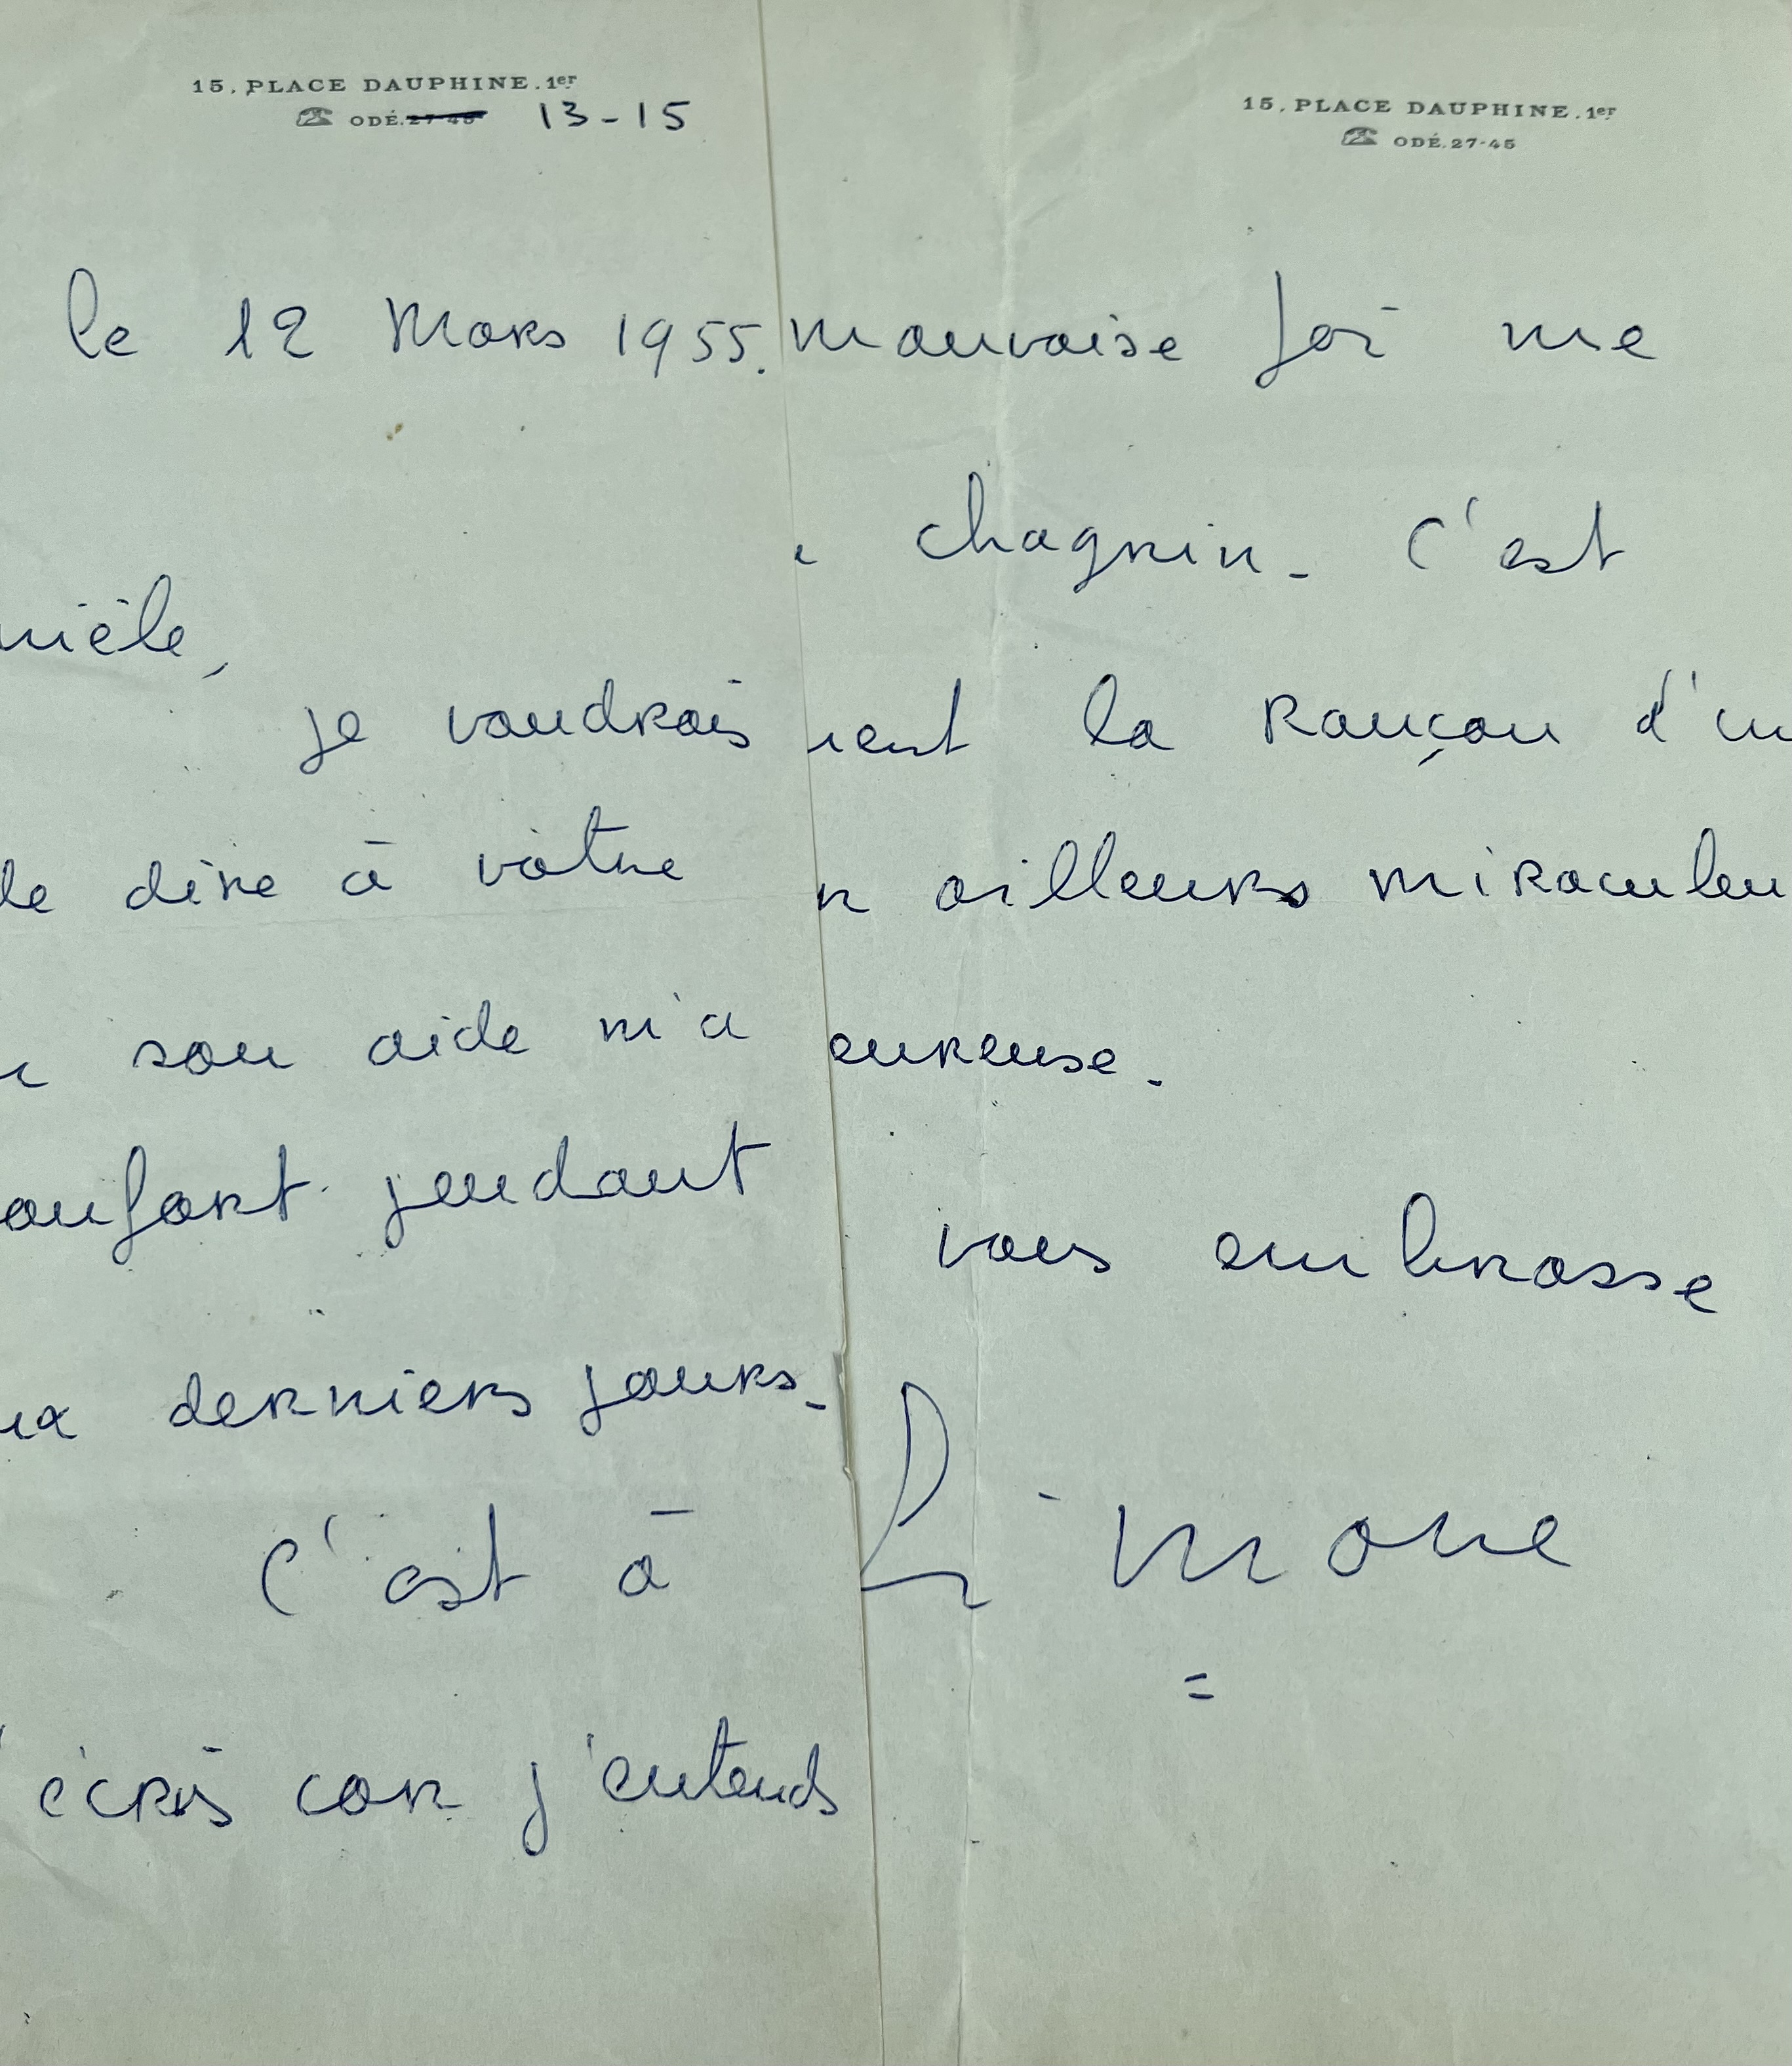 15, PLACE DAUPHINE. 1er
☎ ODÉ. 27-45 13-15
le 12 Mars 1955.
nièle,
je voudrais
de dire à vôtre
son aide m'a
onfort pendant
ux derniers jours.
C'est à
écris car j'entends
15, PLACE DAUPHINE. 1er
☎ ODÉ. 27-45
mauvaise foi me
chagrin. C'est
ient la rançon d'un
n ailleurs miraculeu
eureuse.
vous embrasse
Simone